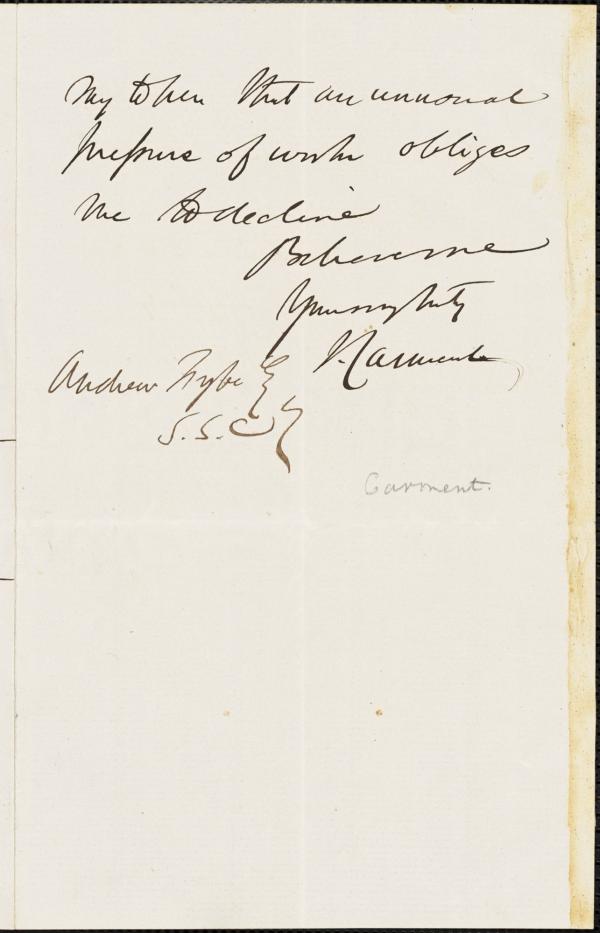 say to her that an unusual
pressure of work obliges
me to decline
Believe me
Yours truly
J. Carment
Andrew Fyfe Esq
S.S.C
Carment.